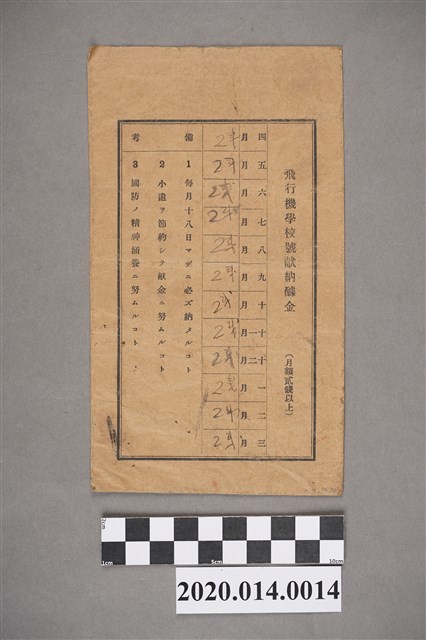 飛行機學校號献納醵金 (月額貳錢以上)
四月 五月 六月 七月 八月 九月 十月 十一月 十二月 一月 二月 三月
2錢 2錢 2錢 2錢 2錢 2錢 2錢 2錢 2錢 2錢 2錢 2錢
備考
1 每月十八日マデニ必ズ納メルコト
2 小遣ヲ節約シテ献金ニ努ムルコト
3 國防ノ精神涵養ニ努ムルコト
2cm
1cm 5cm 10cm
2020.014.0014